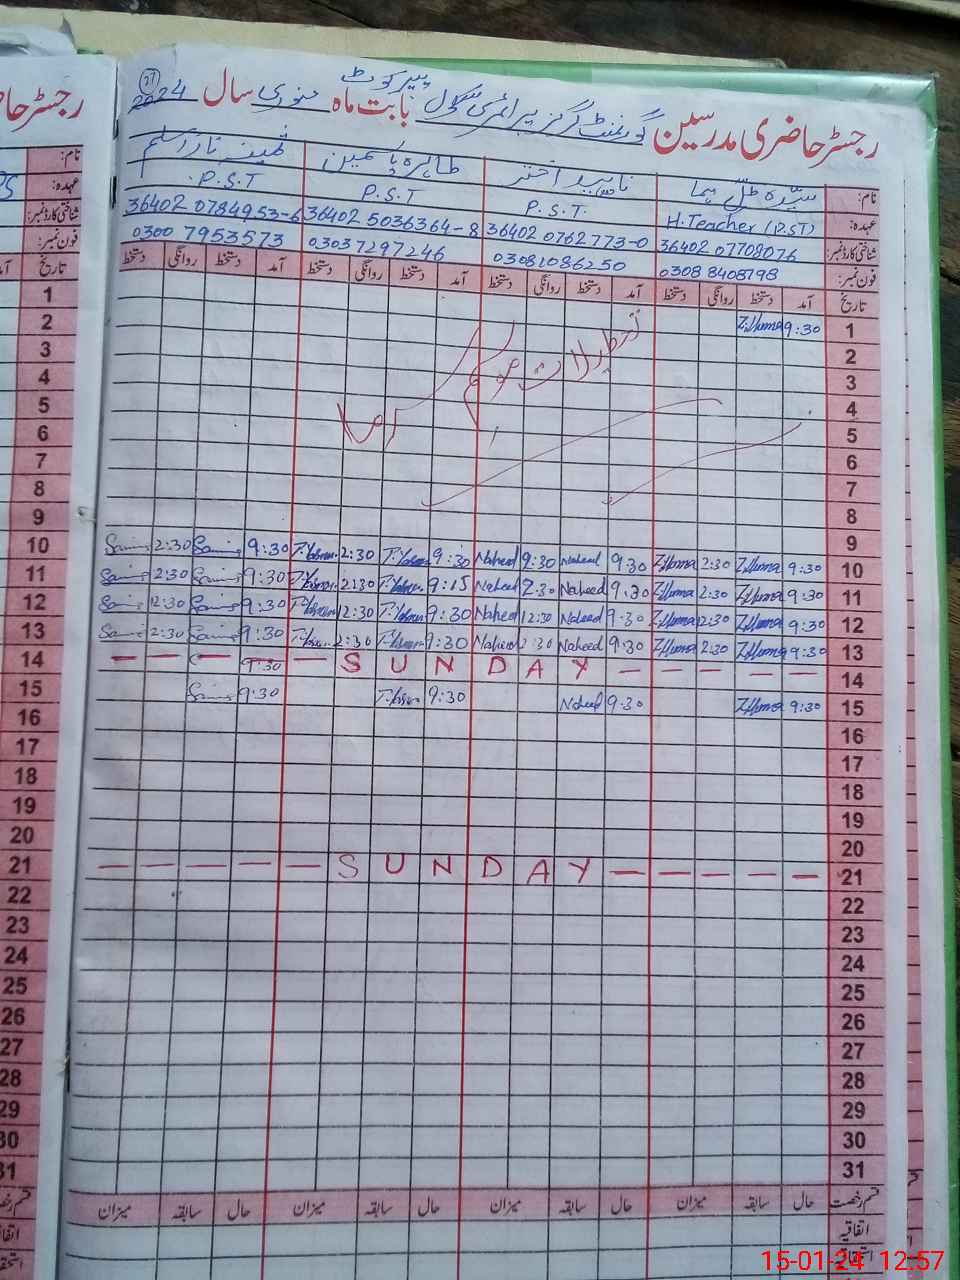 پیر کوٹ
رجسٹر حاضری مدرسین گورنمنٹ گرلز پرائمری سکول بابت ماہ جنوری سال 2024
27
نام: سیدہ ظل ہما ناہید اختر طاہرہ یاسمین ثمینہ ناز اسلم
عہدہ: H.Teacher (P.ST) P.S.T. P.S.T P.S.T
شناختی کارڈ نمبر: 36402 07708076 36402 0762773-0 36402 5036364-8 36402 0784953-6
فون نمبر: 0308 8408798 03081086250 03037297246 0300 7953573
تاریخ آمد دستخط روانگی دستخط آمد دستخط روانگی دستخط آمد دستخط روانگی دستخط آمد دستخط روانگی دستخط
1 9:30 Z.Huma
2
3
4
5
6
7
8
9
تعطیلات موسم سرما
10 9:30 Z.Huma 2:30 Z.Huma 9:30 Naheed 9:30 Naheed 9:30 T.Yasmin 2:30 T.Yasmin 9:30 2:30
11 9:30 Z.Huma 2:30 Z.Huma 9:30 Naheed 2:30 Naheed 9:15 T.Yasmin 2:30 T.Yasmin 9:30 2:30
12 9:30 Z.Huma 12:30 Z.Huma 9:30 Naheed 12:30 Naheed 9:30 T.Yasmin 12:30 T.Yasmin 9:30 12:30
13 9:30 Z.Huma 2:30 Z.Huma 9:30 Naheed 2:30 Naheed 9:30 T.Yasmin 2:30 T.Yasmin 9:30 2:30
14 — — — S U N D A Y — — — 9:30
15 9:30 Z.Huma 9:30 Naheed 9:30 T.Yasmin 9:30
16
17
18
19
20
21 — — — — — S U N D A Y — — — — —
22
23
24
25
26
27
28
29
30
31
قسم رخصت حال سابقہ میزان حال سابقہ میزان حال سابقہ میزان حال سابقہ میزان
اتفاقیہ
استحقاقیہ
15-01-24 12:57